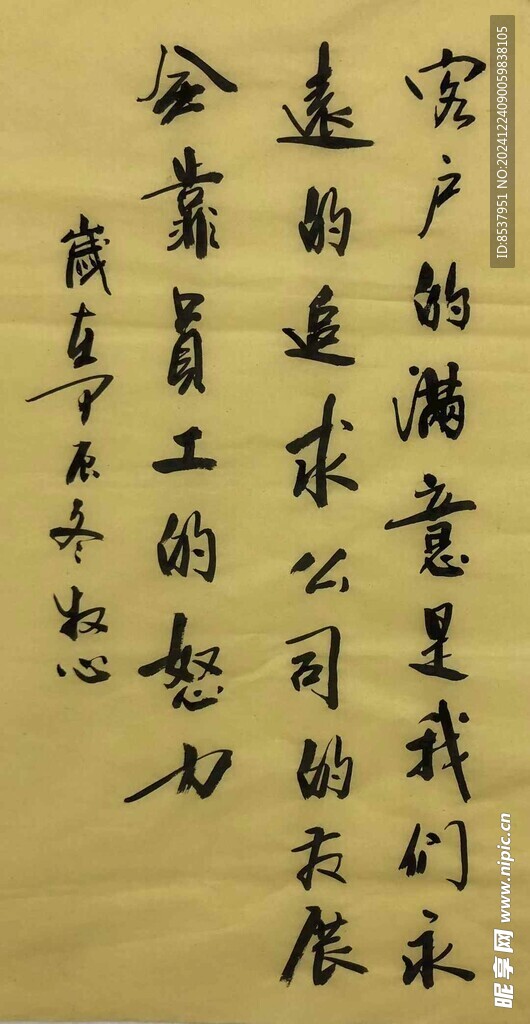 客户的满意是我们永
遠的追求公司的发展
全靠員工的怒力
歲在甲辰冬牧心
ID:8537951 NO:20241224090059838105
昵享网 www.nipic.cn